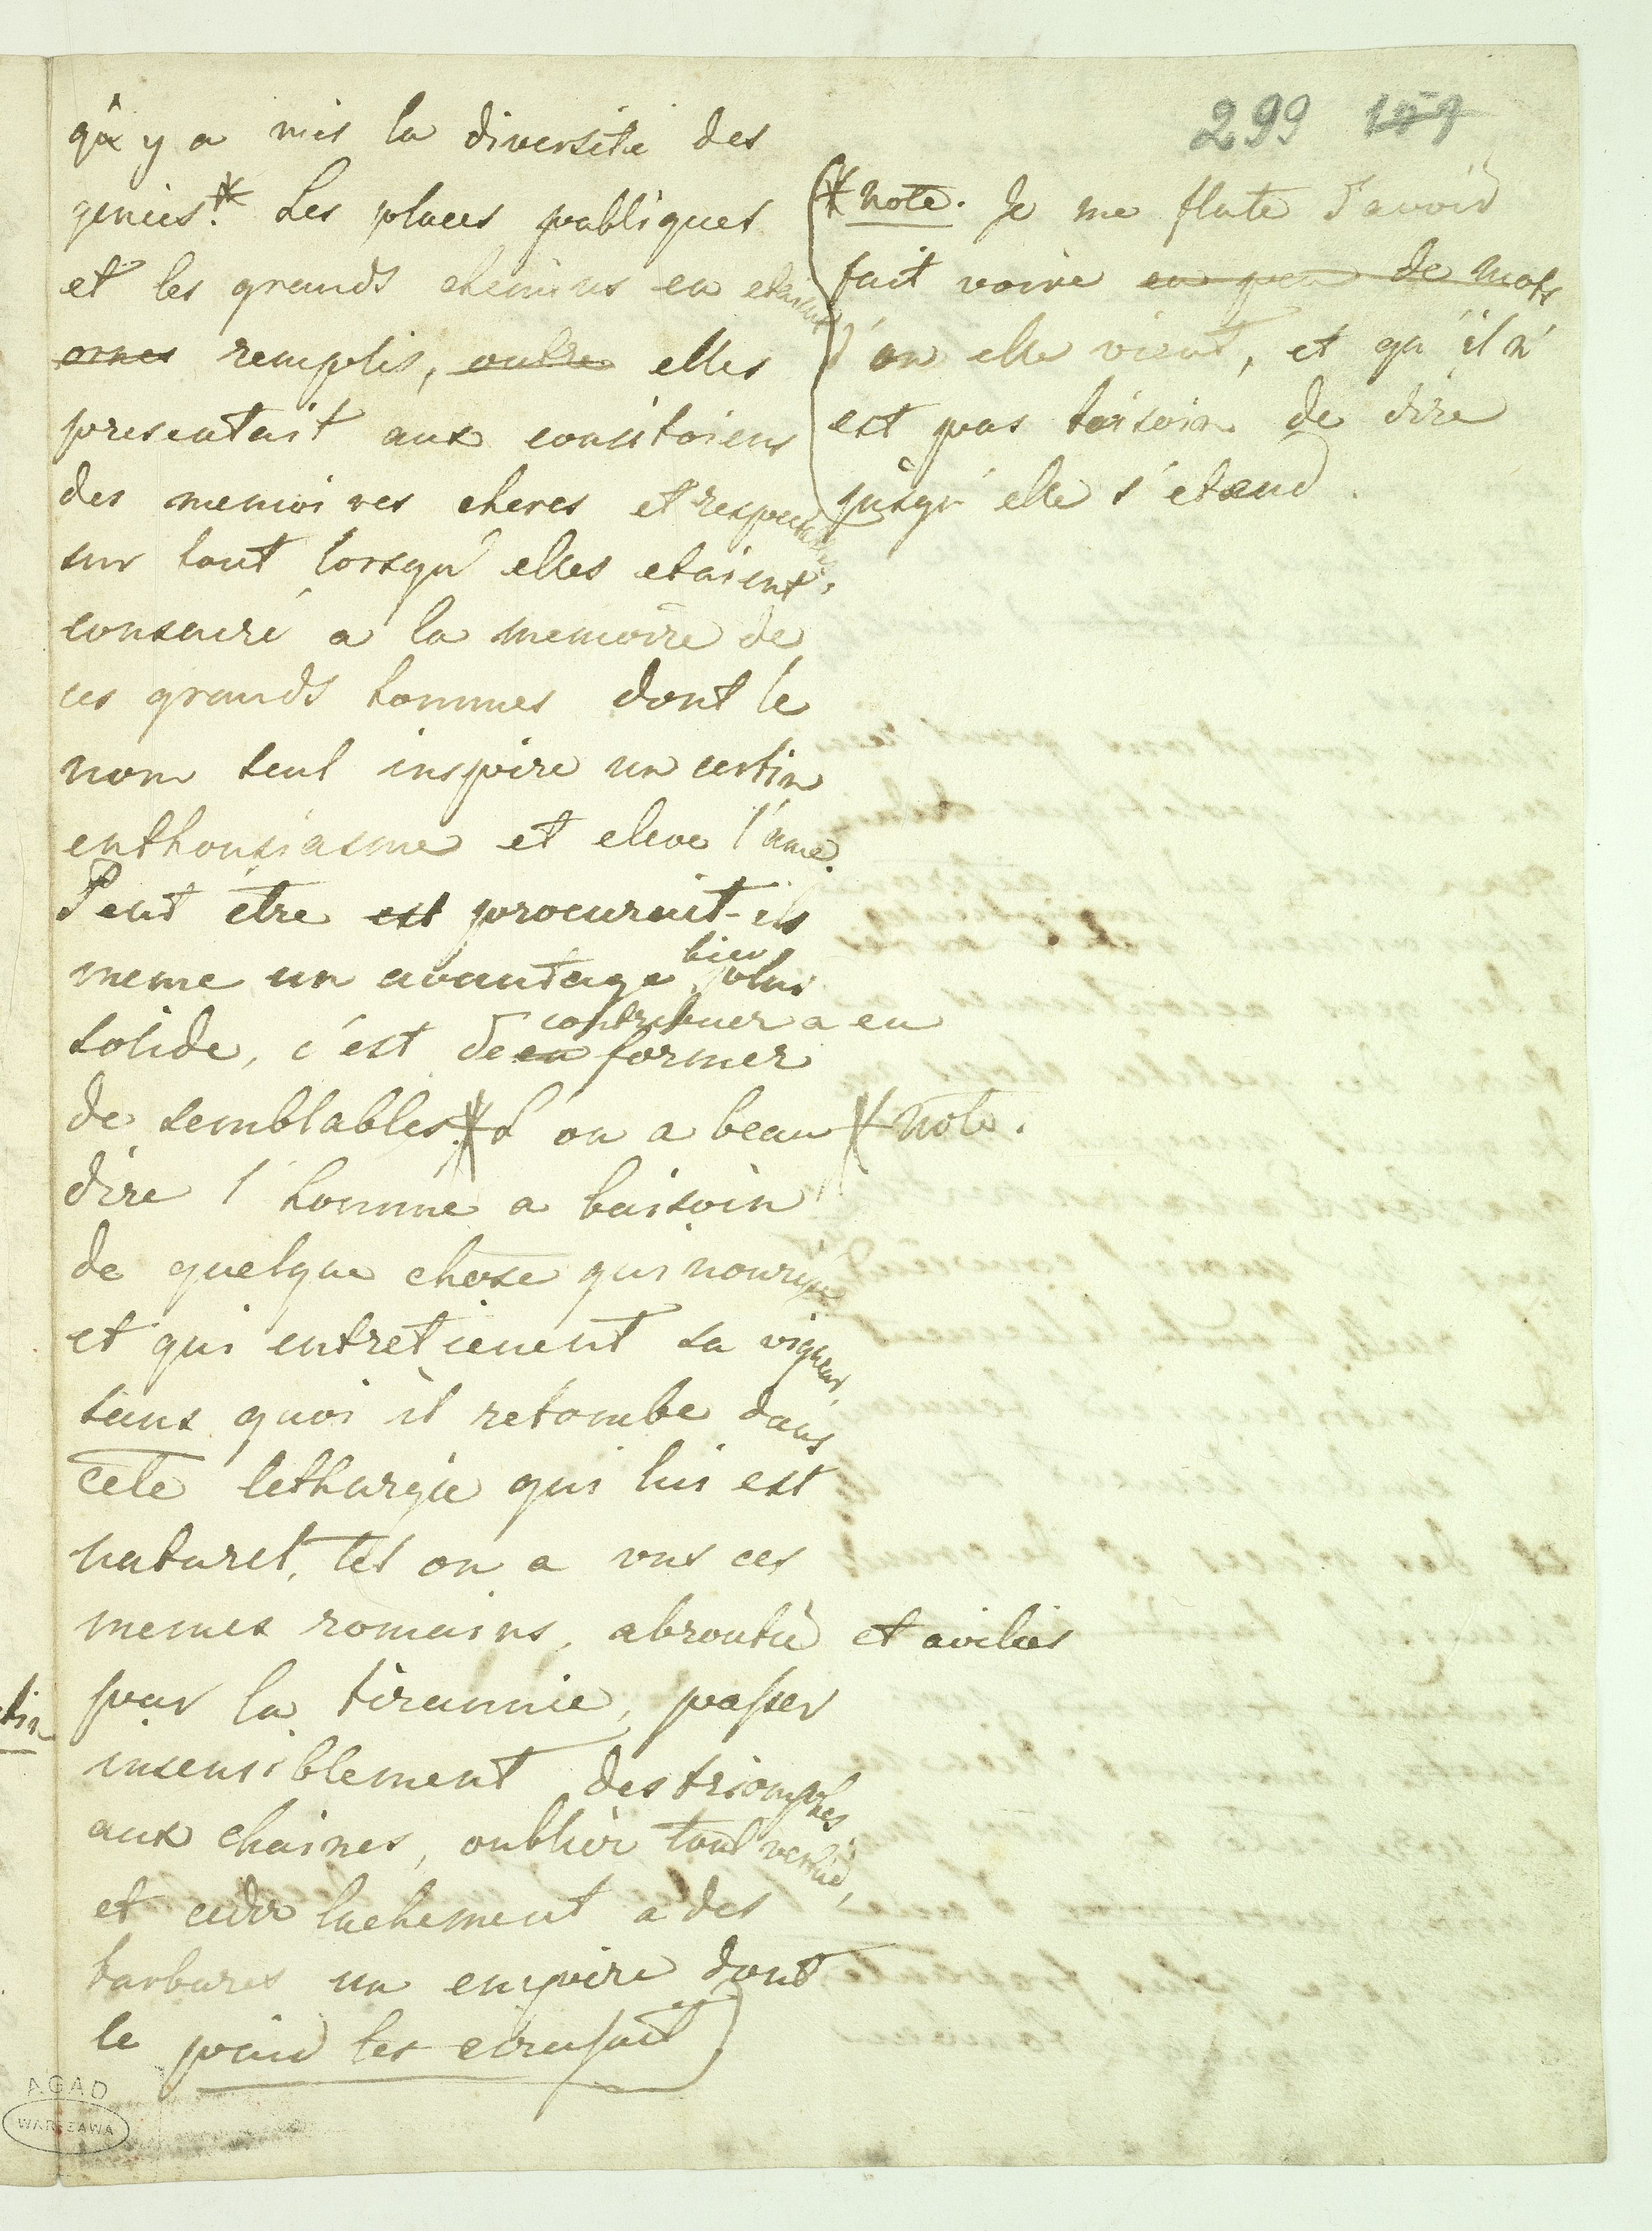 299 197
qu'y a mis la diversité des
genies.* Les places publiques
et les grands chemins en etaient
ornes remplis, outre elles
presentait aux concitoiens
des memoires cheres et respectables
sur tout lorsqu'elles etaient
consacré a la memoire de
ces grands hommes dont le
nom seul inspire un certin
enthousiasme et eleve l'ame.
Peut être est procurait-ils
meme un avantage bien plus
solide, c'est de en contribuer a en former
de semblables.* L'on a beau
dire l'homme a baisoin
de quelque chose qui nourisse
et qui entretienent sa vigueur,
sans quoi il retombe dans
cete lethargie qui lui est
naturel, tel on a vus ces
memes romains, abroutis et avilies
par la tirannie, passer
insensiblement des triomphes
aux chaines, oublier tout vertue,
et ceder lachement a des
barbares un empire dont
le poid les ecrasait)
(* note. Je me flate d'avoir
fait voire en peu de mots
d'on elle vient, et qu'il n'
est pas baisoin de dire
jusqu'elle s'etend.
* note.
tin
AGAD
WARSZAWA